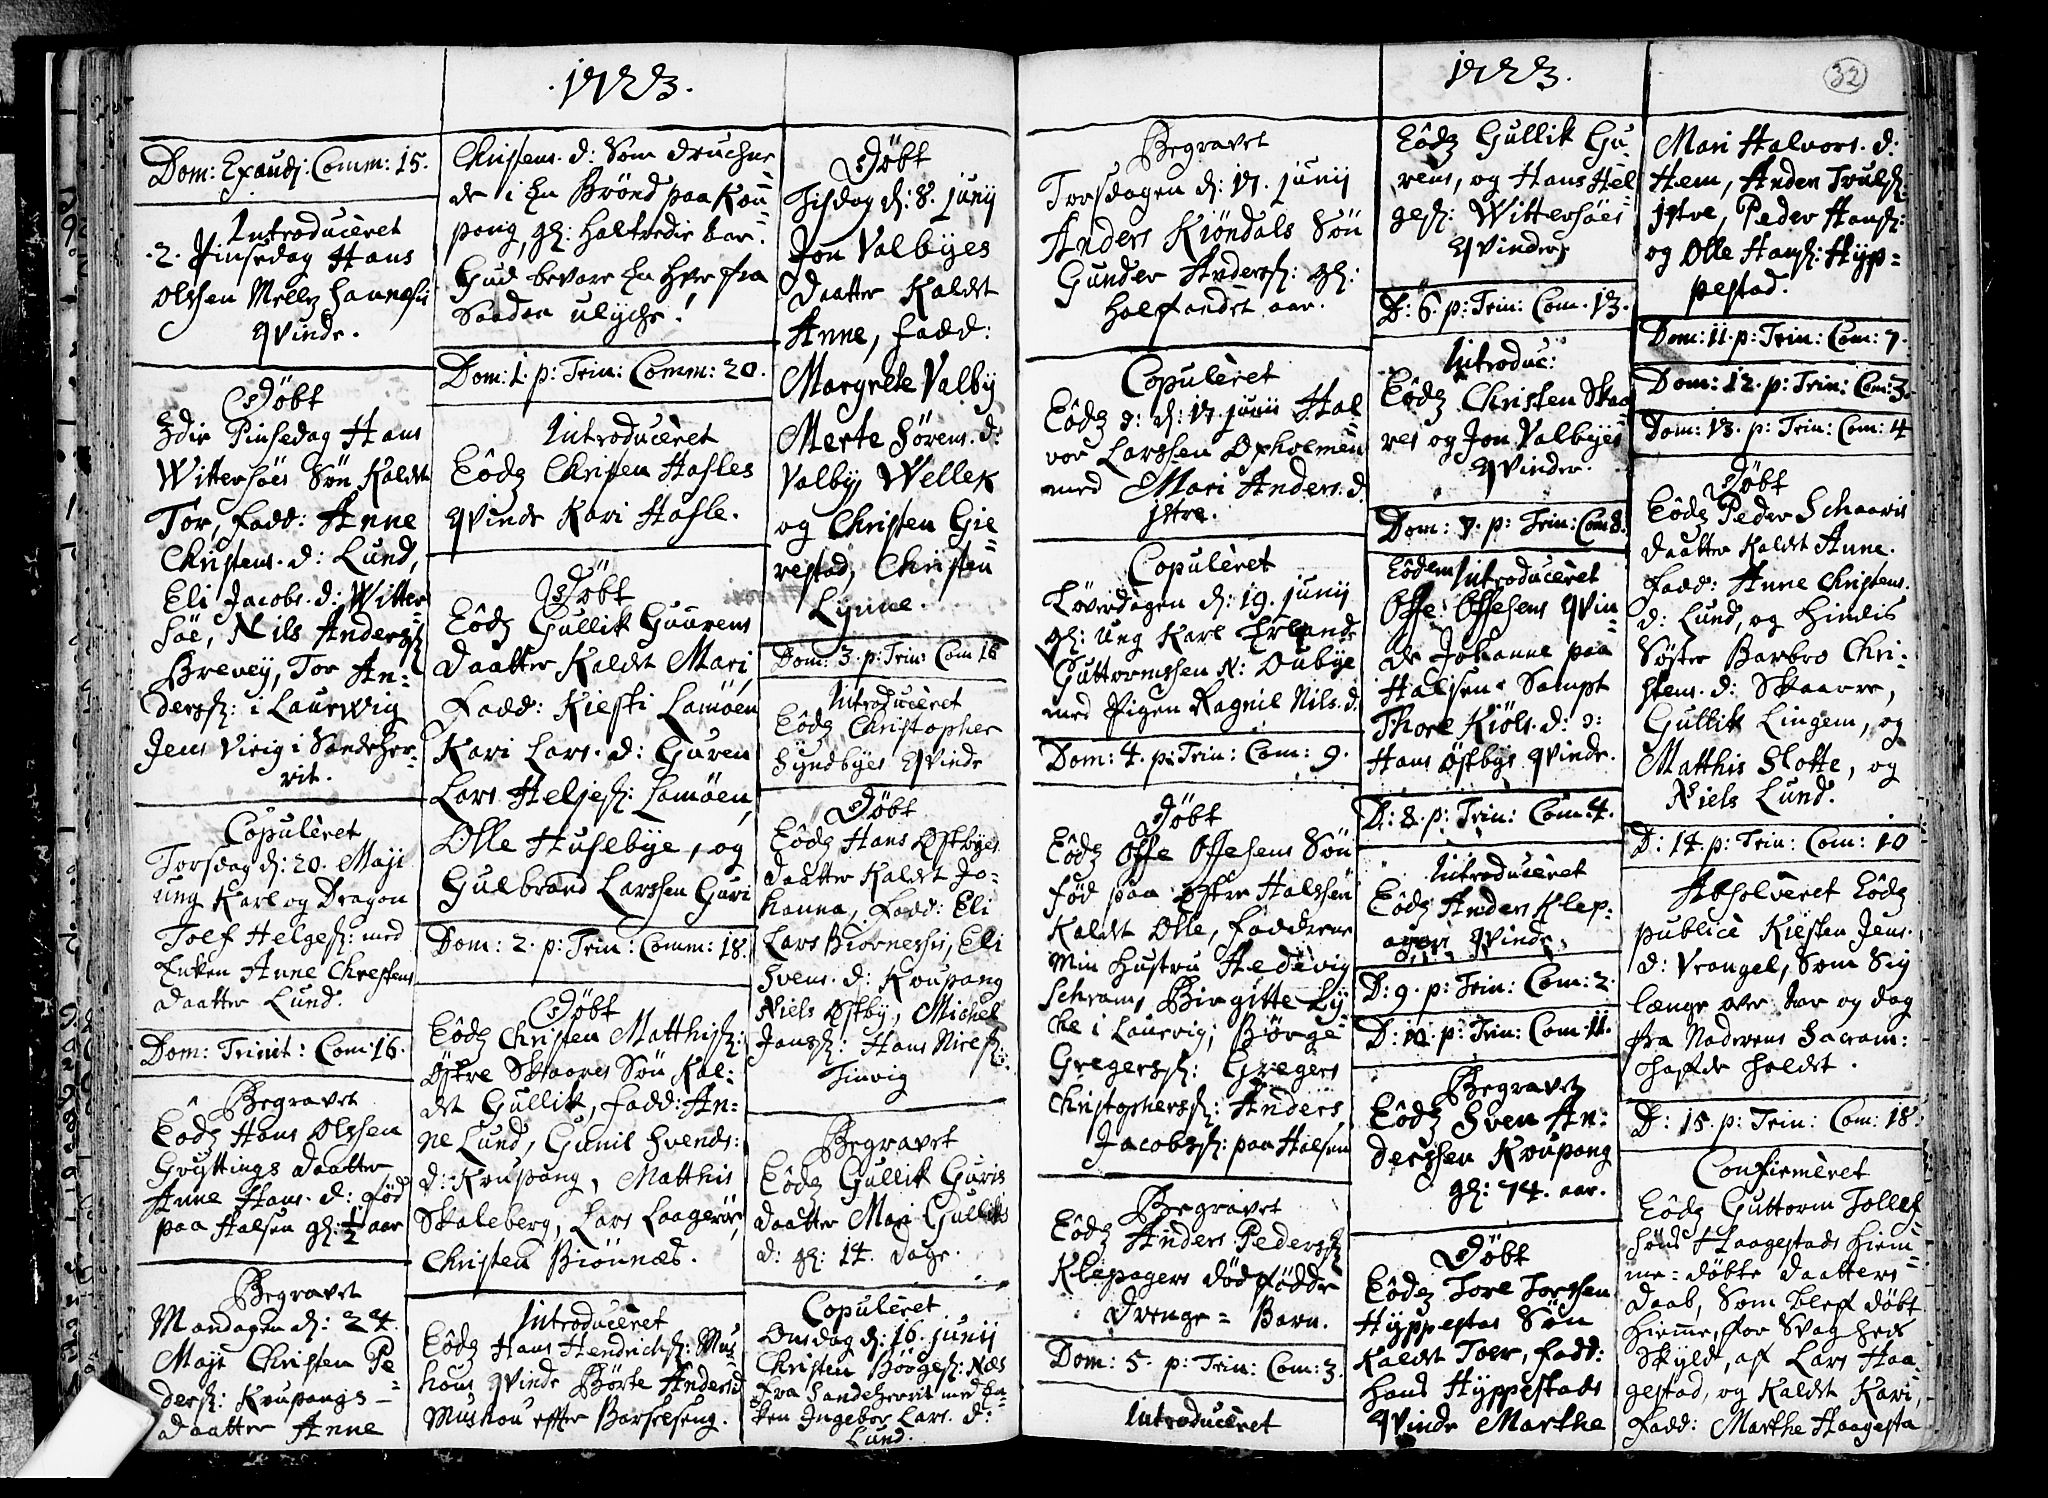 ·1723·
Dom: Exaudj: Comm: 15.
Introducêret
·2· Pinsedag Hans
Olssen Melløs
qvinde.
Døbt
3die Pinsedag Hans
Wittersöes Søn Kaldt
Tor, fadd: Anne
Christens. d: Lund,
Eli Jacobs. d: Witter
söe, Nils Anderss:
Brevey, Tor An-
derss: i Laurwig
Jens Virig i Sandeher-
rit.
Copulêret
Torsdag d: 20. Maji
ung Karl og Dragon
Toef Helges: med
Enken Anne Christens
daatter Lund.
Dom: Trinit: Com: 16.
Begravet
Eôdz Hans Olssen
Gryttings daatter
Anne Hans. d: født
paa Halsen gl: ½ aar
Begravet
Mandagen d: 24.
Maji Christen Pe-
ders: Kroupangs-
daatter Anne
Christens. d: som druchne
de i en Brönd paa Kou-
pang, gl: halftredie aar.
Gud bevare en hver fra
Saadan ulyche!
Dom: 1. p: Trin: Comm: 20.
Introducêret
Eôdz Christen Hasles
qvinde Kari Hasle.
Døbt
Eôdz Gullik Guurens
daatter Kaldt Mari,
Fadd: Kiesti Lamöen
Kari Lars. d: Guren
Lars Heljes: Lamöen,
Olle Huslebye, og
Gulbrand Larssen Guri
Dom: 2. p: Trin: Comm: 18.
Døbt
Eôdz Christen Matthiss:
Östre Skaares Sön Kal-
det Gullik, fadd: An-
ne Lund, Gunil Svends:
d: Kroupang, Matthis
Skaleberg, Lars Laageröe,
Christen Biönnes.
Introducêret
Eôdz Hans Hendrichs: Mus-
hous qvinde Börte Anders. d
Mushou effter Barselseng.
Døbt
Tisdag d: 8. junij
Jon Valbyes
daatter Kaldt
Anne, fadd:
Margrete Valby
Merte Sörens. d:
Valby, Wellek
og Christen Gie-
restad, Christen
Lynne.
Dom: 3. p: Trin: Com 16
Introducêret
Eôdz Christopher
Hyndbyes qvinde
Døbt
Eôdz Hans Östbyes
daatter Kaldt Jo-
hanna, fadd: Eli
Lars Biörnessis, Eli
Svens. d: Kroupang
Niels Östby, Michel
Janss: Hans Nires:
Tinvig
Begravet
Eôdz Gullik Guris
daatter Mari Gulliks
d: gl: 14. dage.
Copulêret
Onsdag d: 16. junij
Christen Börges: Næs
fra Sandeherrit med En-
ken Ingebor Lars. d:
Lund.
1723.
32
Begravet
Torsdagen d: 17. junij
Anders Kiöndals Sön
Gunder Anderss: gl:
halfandet aar.
Copulêret
Eôdz ɔ: d: 17. junii Hal
vor Larssen Opholmen
med Mari Anders. d.
jstre.
Copulêret
Löverdagen d: 19. junij
gl: ung Karl Erland
Guttormssen N: Oubye
med Pigen Ragnil Nils. d.
Dom: 4. p: Trin: Com: 9.
Døbt
Eôdz Offe Offesens Sön
föd paa östre Halssen
Kaldt Olle, faddrene
min Hustru Hedevig
Schrams, Birgitte Ly
che i Laurvig, Börge
Gregerss: Gregers
Christopherss: Anders
Jacobss: paa Halsen
Begravet
Eôdz Anders Pederss:
Klepagers dödfödde
Drenge-Barn.
Dom: 5. p: Trin: Com: 3.
Introducêret
Eôdz Gullik Gu-
rens, og Hans Hel
ges: Wittersöes
qvinder,
D: 6. p: Trin: Com. 13.
Introduc:
Eôdz Christen Skaa
res og Jon Valbyes
qvinder.
Dom: 7. p: Trin: Com 8.
Eôdem Introducêret
Offe Offesens qvin-
de Johanne paa
Halsen. Sampt
Thore Kiöls. d: ɔ:
Hans Östbys qvinde.
D: 8. p: Trin: Com: 4.
Introducêret
Eôdz Anders Klep-
agers qvinde.
D: 9. p: Trin: Com: 2.
D: 10. p: Trin: Com 11.
Begravet
Eôdz Sven An-
derssen Kroupang
gl: 74. aar.
Døbt
Eôdez Tore Torssen
Hyppestas Sön
Kaldt Toer, fadd:
Hans Hyppestads
qvinde Marthe
Mari Halvors. d:
Hem, Anders Truls:
jstre, Peder Hans:
og Olle Hans: Hyp-
pestad.
Dom: 11. p: Trin: Com: 7.
Dom: 12. p: Trin: Com: 3.
Dom: 13. p: Trin: Com: 4
Døbt
Eôdz Peder Schaaris
daatter Kaldt Anne.
fadd: Anne Christens.
d: Lund, og hindis
Söster Barbro Chri-
stens. d: Skaarre,
Gullik Lingem, og
Matthis Slotte, og
Niels Lund.
D: 14. p: Trin: Com: 10
Absolvêret Eôdz
publicè Kiesten Jens.
d: Vrangel, Som Sig
længe over Aar og dag
fra Naderens Sacram:
hafde holdt.
D: 15. p: Trin: Com: 18.
Confirmêret
Eôdz Guttorm Tollef
söns Haagestads Hiem-
me-döbte daatters
daab, Som blef döbt
hiemme, for Svagheds
Skyld, af Lars Haa-
gestad, og Kaldt Kari,
Fadd: Marthe Haagesta